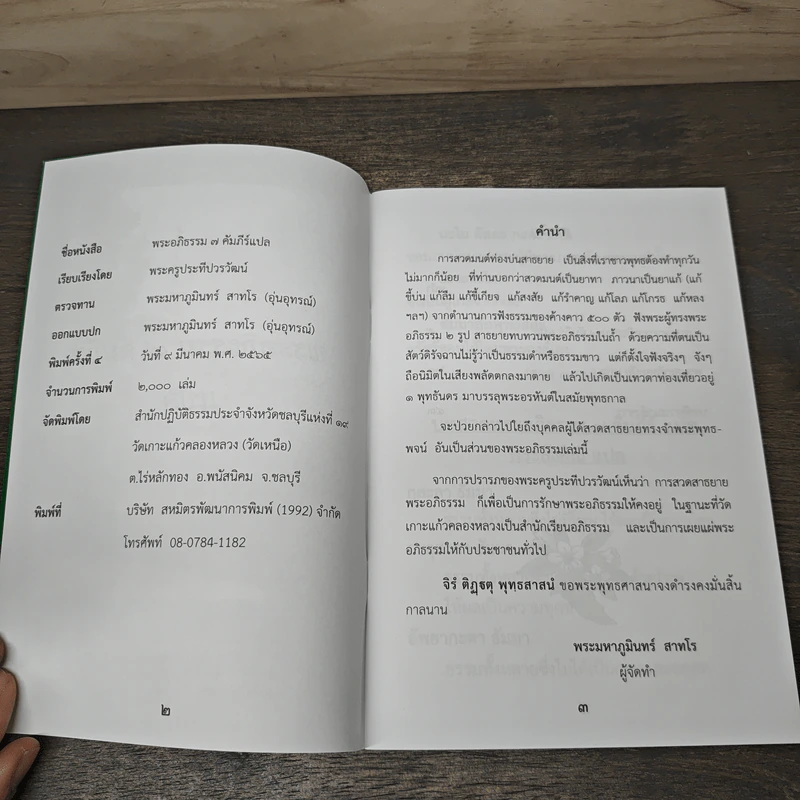 ชื่อหนังสือ พระอภิธรรม ๗ คัมภีร์แปล
เรียบเรียงโดย พระครูประทีปวรวัฒน์
ตรวจทาน พระมหาภูมินทร์ สาทโร (อุ่นอุทรณ์)
ออกแบบปก พระมหาภูมินทร์ สาทโร (อุ่นอุทรณ์)
พิมพ์ครั้งที่ ๔ วันที่ ๙ มีนาคม พ.ศ. ๒๕๖๕
จำนวนการพิมพ์ ๒,๐๐๐ เล่ม
จัดพิมพ์โดย สำนักปฏิบัติธรรมประจำจังหวัดชลบุรีแห่งที่ ๑๙
วัดเกาะแก้วคลองหลวง (วัดเหนือ)
ต.ไร่หลักทอง อ.พนัสนิคม จ.ชลบุรี
พิมพ์ที่ บริษัท สหมิตรพัฒนาการพิมพ์ (1992) จำกัด
โทรศัพท์ 08-0784-1182
๒
คำนำ
การสวดมนต์ท่องบ่นสาธยาย เป็นสิ่งที่เราชาวพุทธต้องทำทุกวัน
ไม่มากก็น้อย ที่ท่านบอกว่าสวดมนต์เป็นยาทา ภาวนาเป็นยาแก้ (แก้
ขี้บ่น แก้ลืม แก้ขี้เกียจ แก้สงสัย แก้รำคาญ แก้โลภ แก้โกรธ แก้หลง
ฯลฯ) จากตำนานการฟังธรรมของค้างคาว ๕๐๐ ตัว ฟังพระผู้ทรงพระ
อภิธรรม ๒ รูป สาธยายทบทวนพระอภิธรรมในถ้ำ ด้วยความที่ตนเป็น
สัตว์ดิรัจฉานไม่รู้ว่าเป็นธรรมดำหรือธรรมขาว แต่ก็ตั้งใจฟังจริงๆ จังๆ
ถือนิมิตในเสียงพลัดตกลงมาตาย แล้วไปเกิดเป็นเทวดาท่องเที่ยวอยู่
๑ พุทธันดร มาบรรลุพระอรหันต์ในสมัยพุทธกาล
จะป่วยกล่าวไปใยถึงบุคคลผู้ได้สวดสาธยายทรงจำพระพุทธ-
พจน์ อันเป็นส่วนของพระอภิธรรมเล่มนี้
จากการปรารภของพระครูประทีปวรวัฒน์เห็นว่า การสวดสาธยาย
พระอภิธรรม ก็เพื่อเป็นการรักษาพระอภิธรรมให้คงอยู่ ในฐานะที่วัด
เกาะแก้วคลองหลวงเป็นสำนักเรียนอภิธรรม และเป็นการเผยแผ่พระ
อภิธรรมให้กับประชาชนทั่วไป
จิรํ ติฏฺฐตุ พุทฺธสาสนํ ขอพระพุทธศาสนาจงดำรงคงมั่นสิ้น
กาลนาน
พระมหาภูมินทร์ สาทโร
ผู้จัดทำ
๓